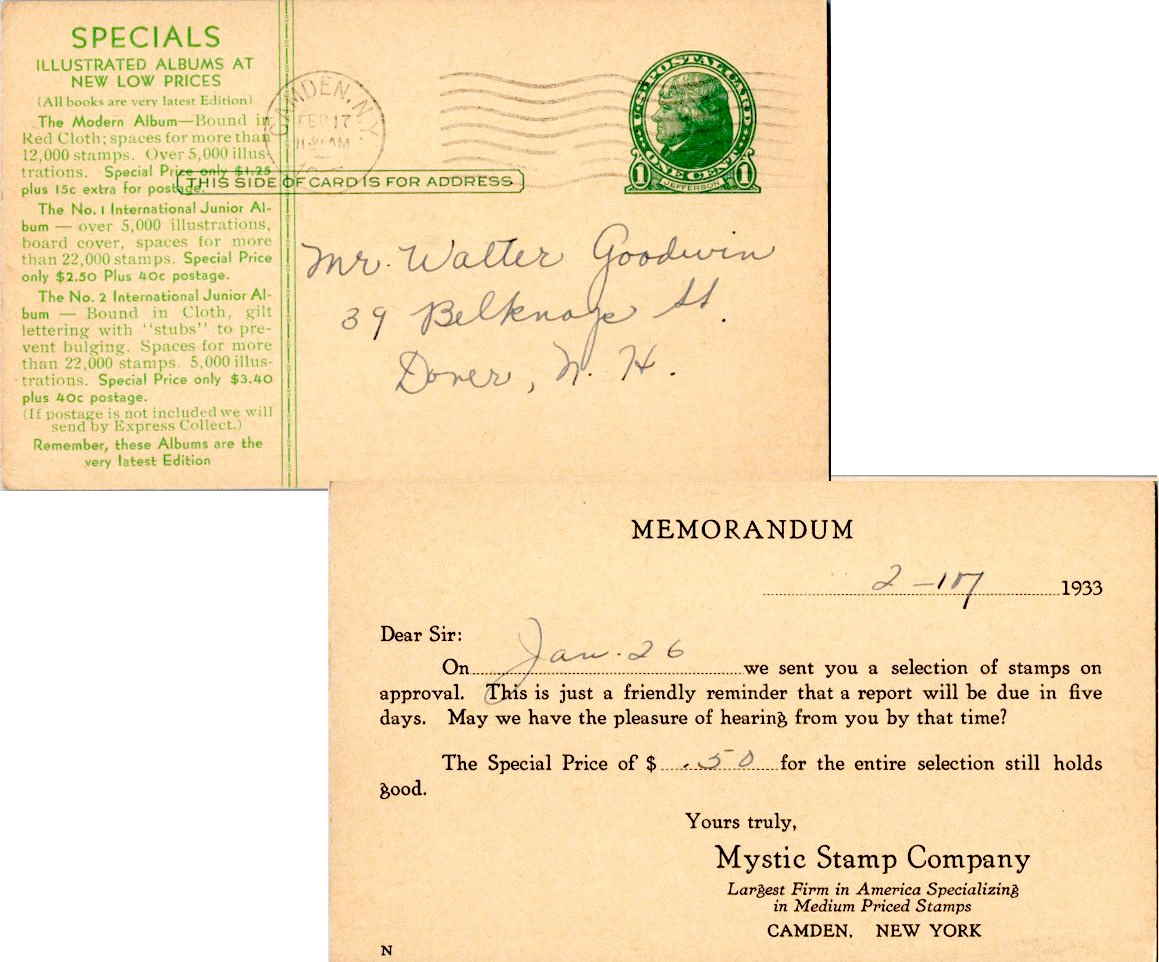 SPECIALS
ILLUSTRATED ALBUMS AT
NEW LOW PRICES
(All books are very latest Edition)
The Modern Album—Bound in
Red Cloth; spaces for more than
12,000 stamps. Over 5,000 illus-
trations. Special Price only $1.25
plus 15c extra for postage.
The No. 1 International Junior Al-
bum — over 5,000 illustrations,
board cover, spaces for more
than 22,000 stamps. Special Price
only $2.50 Plus 40c postage.
The No. 2 International Junior Al-
bum — Bound in Cloth, gilt
lettering with "stubs" to pre-
vent bulging. Spaces for more
than 22,000 stamps. 5,000 illus-
trations. Special Price only $3.40
plus 40c postage.
(If postage is not included we will
send by Express Collect.)
Remember, these Albums are the
very latest Edition
CAMDEN, N.Y.
FEB 17
AM
U.S. POSTAL CARD
ONE CENT
1 JEFFERSON 1
THIS SIDE OF CARD IS FOR ADDRESS
Mr. Walter Goodwin
39 Belknap St.
Dover, N. H.
MEMORANDUM
2-17 1933
Dear Sir:
On Jan. 26 we sent you a selection of stamps on
approval. This is just a friendly reminder that a report will be due in five
days. May we have the pleasure of hearing from you by that time?
The Special Price of $ .50 for the entire selection still holds
good.
Yours truly,
Mystic Stamp Company
Largest Firm in America Specializing
in Medium Priced Stamps
CAMDEN, NEW YORK
N